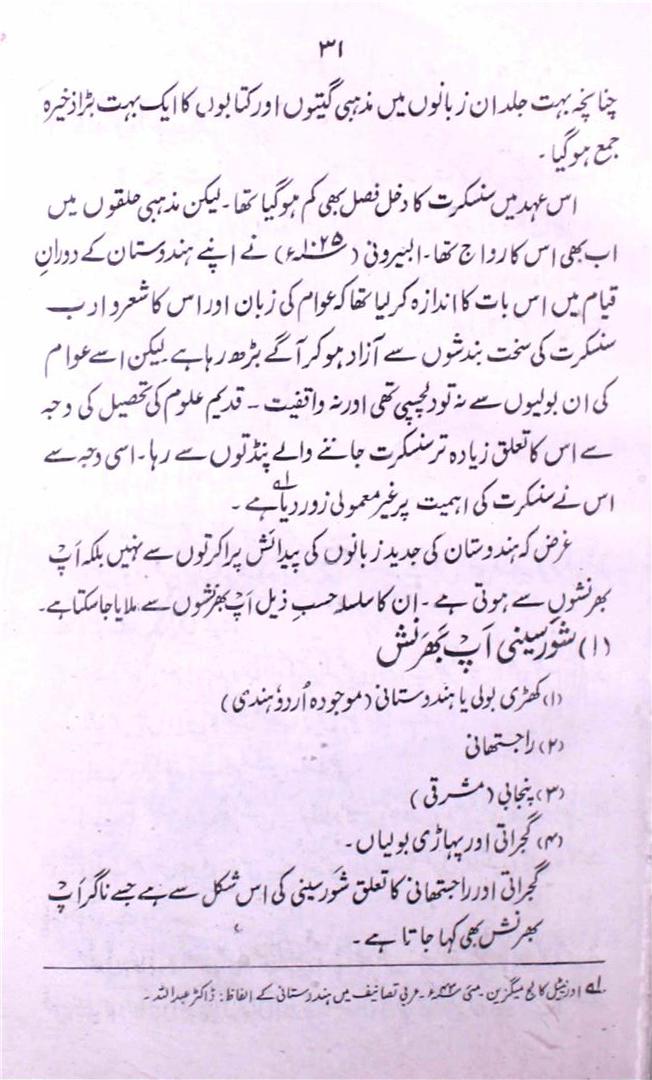 ۳۱
چنانچہ بہت جلد ان زبانوں میں مذہبی گیتوں اور کتابوں کا ایک بہت بڑا ذخیرہ
جمع ہو گیا۔
اس عہد میں سنسکرت کا دخل فصل بھی کم ہو گیا تھا۔ لیکن مذہبی حلقوں میں
اب بھی اس کا رواج تھا۔ البیرونی (۱۰۲۵ء) نے اپنے ہندوستان کے دورانِ
قیام میں اس بات کا اندازہ کر لیا تھا کہ عوام کی زبان اور اس کا شعر و ادب
سنسکرت کی سخت بندشوں سے آزاد ہو کر آگے بڑھ رہا ہے لیکن اسے عوام
کی ان بولیوں سے نہ تو دلچسپی تھی اور نہ واقفیت ۔ قدیم علوم کی تحصیل کی وجہ
سے اس کا تعلق زیادہ تر سنسکرت جاننے والے پنڈتوں سے رہا۔ اسی وجہ سے
اس نے سنسکرت کی اہمیت پر غیر معمولی زور دیا ہے ۔ لہ
غرض کہ ہندوستان کی جدید زبانوں کی پیدائش پراکرتوں سے نہیں بلکہ اَپ
بھرنشوں سے ہوتی ہے ۔ ان کا سلسلہ حسبِ ذیل اَپ بھرنشوں سے ملایا جا سکتا ہے۔
(۱) شَورسینی اَپ بَھرَنش
(۱) کھڑی بولی یا ہندوستانی (موجودہ اُردو ہندی)
(۲) راجستھانی
(۳) پنجابی (مشرقی)
(۴) گجراتی اور پہاڑی بولیاں۔
گجراتی اور راجستھانی کا تعلق شَورسینی کی اس شکل سے ہے جسے ناگر اَپ
بھرنش بھی کہا جاتا ہے ۔
لہ اورنیٹل کالج میگزین۔ مئی ء۔ عربی تصانیف میں ہندوستانی کے الفاظ: ڈاکٹر عبداللہ ۔